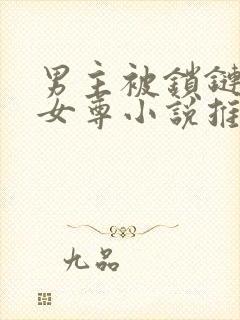 男主被鎖鏈
女尊小說推
九品